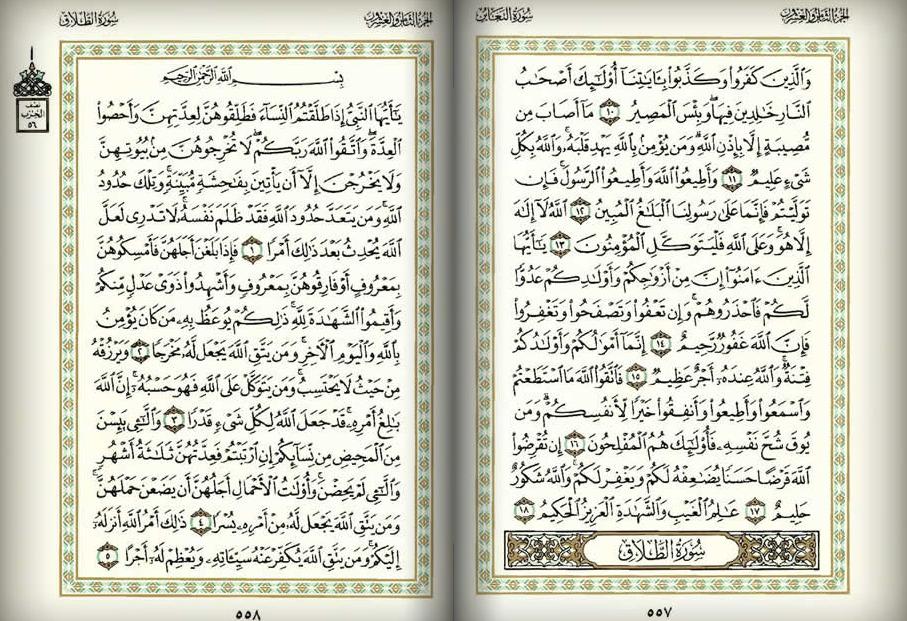 الجزء الثامن والعشرون
سورة التغابن
وَالَّذِينَ كَفَرُوا وَكَذَّبُوا بِآيَاتِنَا أُوْلَٰئِكَ أَصْحَابُ
النَّارِ خَالِدِينَ فِيهَا وَبِئْسَ الْمَصِيرُ ١٠ مَا أَصَابَ مِن
مُّصِيبَةٍ إِلَّا بِإِذْنِ اللَّهِ وَمَن يُؤْمِن بِاللَّهِ يَهْدِ قَلْبَهُ وَاللَّهُ بِكُلِّ
شَيْءٍ عَلِيمٌ ١١ وَأَطِيعُوا اللَّهَ وَأَطِيعُوا الرَّسُولَ فَإِن
تَوَلَّيْتُمْ فَإِنَّمَا عَلَىٰ رَسُولِنَا الْبَلَاغُ الْمُبِينُ ١٢ اللَّهُ لَا إِلَٰهَ
إِلَّا هُوَ وَعَلَى اللَّهِ فَلْيَتَوَكَّلِ الْمُؤْمِنُونَ ١٣ يَا أَيُّهَا
الَّذِينَ آمَنُوا إِنَّ مِنْ أَزْوَاجِكُمْ وَأَوْلَادِكُمْ عَدُوًّا
لَّكُمْ فَاحْذَرُوهُمْ وَإِن تَعْفُوا وَتَصْفَحُوا وَتَغْفِرُوا
فَإِنَّ اللَّهَ غَفُورٌ رَّحِيمٌ ١٤ إِنَّمَا أَمْوَالُكُمْ وَأَوْلَادُكُمْ
فِتْنَةٌ وَاللَّهُ عِندَهُ أَجْرٌ عَظِيمٌ ١٥ فَاتَّقُوا اللَّهَ مَا اسْتَطَعْتُمْ
وَاسْمَعُوا وَأَطِيعُوا وَأَنفِقُوا خَيْرًا لِّأَنفُسِكُمْ وَمَن
يُوقَ شُحَّ نَفْسِهِ فَأُوْلَٰئِكَ هُمُ الْمُفْلِحُونَ ١٦ إِن تُقْرِضُوا
اللَّهَ قَرْضًا حَسَنًا يُضَاعِفْهُ لَكُمْ وَيَغْفِرْ لَكُمْ وَاللَّهُ شَكُورٌ
حَلِيمٌ ١٧ عَالِمُ الْغَيْبِ وَالشَّهَادَةِ الْعَزِيزُ الْحَكِيمُ ١٨
سُورَةُ الطَّلَاقِ
٥٥٧
الجزء الثامن والعشرون
سورة الطلاق
بِسْمِ اللَّهِ الرَّحْمَٰنِ الرَّحِيمِ
يَا أَيُّهَا النَّبِيُّ إِذَا طَلَّقْتُمُ النِّسَاءَ فَطَلِّقُوهُنَّ لِعِدَّتِهِنَّ وَأَحْصُوا
الْعِدَّةَ وَاتَّقُوا اللَّهَ رَبَّكُمْ لَا تُخْرِجُوهُنَّ مِن بُيُوتِهِنَّ
وَلَا يَخْرُجْنَ إِلَّا أَن يَأْتِينَ بِفَاحِشَةٍ مُّبَيِّنَةٍ وَتِلْكَ حُدُودُ
اللَّهِ وَمَن يَتَعَدَّ حُدُودَ اللَّهِ فَقَدْ ظَلَمَ نَفْسَهُ لَا تَدْرِي لَعَلَّ
اللَّهَ يُحْدِثُ بَعْدَ ذَٰلِكَ أَمْرًا ١ فَإِذَا بَلَغْنَ أَجَلَهُنَّ فَأَمْسِكُوهُنَّ
بِمَعْرُوفٍ أَوْ فَارِقُوهُنَّ بِمَعْرُوفٍ وَأَشْهِدُوا ذَوَيْ عَدْلٍ مِّنكُمْ
وَأَقِيمُوا الشَّهَادَةَ لِلَّهِ ذَٰلِكُمْ يُوعَظُ بِهِ مَن كَانَ يُؤْمِنُ
بِاللَّهِ وَالْيَوْمِ الْآخِرِ وَمَن يَتَّقِ اللَّهَ يَجْعَل لَّهُ مَخْرَجًا ٢ وَيَرْزُقْهُ
مِنْ حَيْثُ لَا يَحْتَسِبُ وَمَن يَتَوَكَّلْ عَلَى اللَّهِ فَهُوَ حَسْبُهُ إِنَّ اللَّهَ
بَالِغُ أَمْرِهِ قَدْ جَعَلَ اللَّهُ لِكُلِّ شَيْءٍ قَدْرًا ٣ وَاللَّائِي يَئِسْنَ
مِنَ الْمَحِيضِ مِن نِّسَائِكُمْ إِنِ ارْتَبْتُمْ فَعِدَّتُهُنَّ ثَلَاثَةُ أَشْهُرٍ
وَاللَّائِي لَمْ يَحِضْنَ وَأُوْلَاتُ الْأَحْمَالِ أَجَلُهُنَّ أَن يَضَعْنَ حَمْلَهُنَّ
وَمَن يَتَّقِ اللَّهَ يَجْعَل لَّهُ مِنْ أَمْرِهِ يُسْرًا ٤ ذَٰلِكَ أَمْرُ اللَّهِ أَنزَلَهُ
إِلَيْكُمْ وَمَن يَتَّقِ اللَّهَ يُكَفِّرْ عَنْهُ سَيِّئَاتِهِ وَيُعْظِمْ لَهُ أَجْرًا ٥
نصف
الحزب
٥٦
٥٥٨